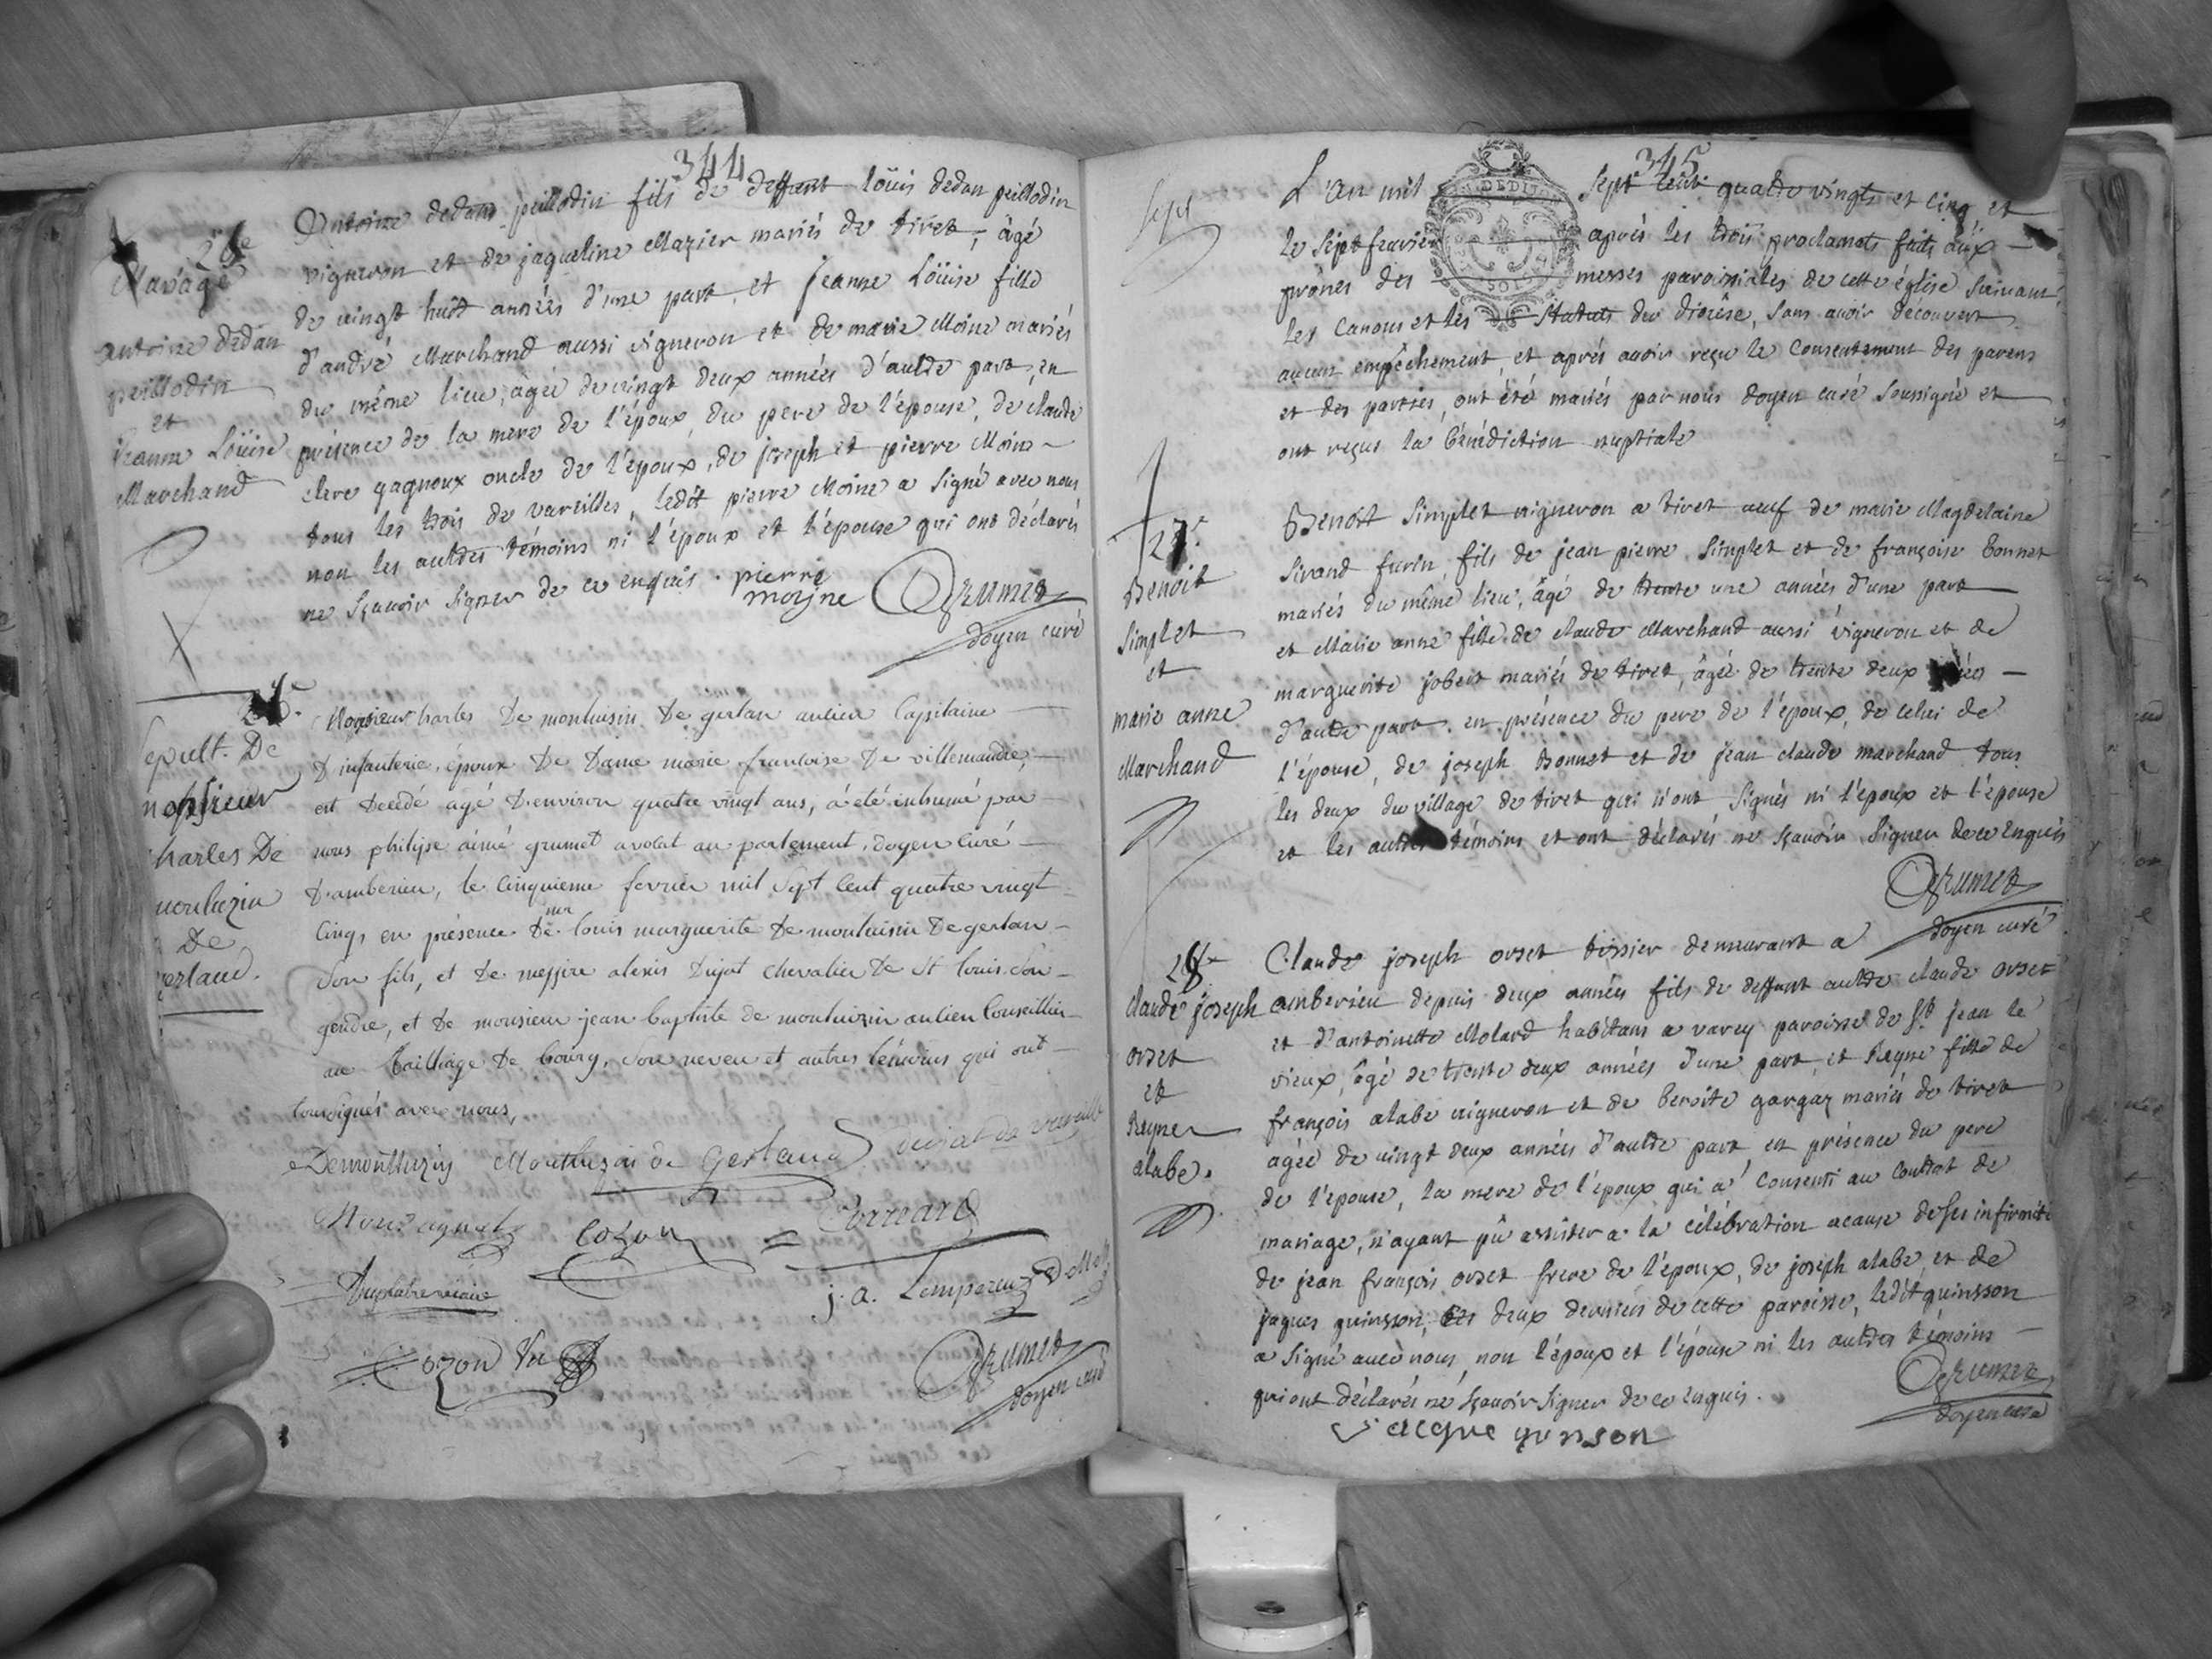 344
26e
Mariage
antoine dedan
peillodin
et
jeanne Loüise
Marchand
Antoine dedans peillodin fils de deffunt loüis dedan peillodin
vigneron et de jaqueline Mazier mariés de tiret, âgé
de vingt huit années d'une part, et jeanne Loüise fille
d'andré Marchand aussi vigneron et de marie Moine mariés
du même lieu, âgée de vingt deux années d'aultre part, en
présence de la mere de l'époux, du pere de l'épouse, de claude
clere gagneux oncle de l'époux, de joseph et pierre Moine
tous les trois de vareilles, ledit pierre Moine a signé avec nous
non les aultres témoins ni l'époux et l'épouse qui ont déclarés
ne sçavoir signer de ce enquis. pierre
moyne Grumet
doyen curé
Sepult. De
monsieur
charles De
montuzin
De
gerland.
Monsieur charles De montuisin De gerlan ancien Capitaine
D'infanterie, époux De Dame marie francoise De villemandre,
est decedé agé D'environ quatre vingt ans, a été inhumé par
nous philipe aimé grumet avocat au parlement, doyen curé
D'amberieu, le cinquieme fevrier mil sept cent quatre vingt
cinq, en présence De mr louis marguerite De montuisin De gerlan
son fils, et De messire alexis Dujat chevalier De St louis son
gendre, et De monsieur jean baptiste de montuizin ancien Conseillier
au bailliage De bourg, son neveu et autres témoins qui ont
soussignés avec nous,
Demontluzin Montluzin de Gerland dujat de vareille
Cozon Corrard
j. a. Lempereur
Cozon
Grumet
doyen curé
345
sept
L'an mil sept cent quatre vingts et cinq, et
le sept fevrier après les trois proclamats faits aux
prônes des messes paroissiales de cette église suivant
les Canons et les statuts du diocèse, sans avoir découvert
aucun empêchement, et après avoir reçu le consentement des parens
et des parties, ont été mariés par nous doyen curé soussigné et
ont reçus la bénédiction nuptiale
27e
Benoit
Simplet
et
marie anne
Marchand
Benoit Simplet vigneron a tiret veuf de marie Magdelaine
Sirand furin fils de jean pierre Simplet et de françoise bonnet
mariés du même lieu, âgé de trente une années d'une part
et Marie anne fille de claude Marchand aussi vigneron et de
marguerite jobert mariés de tiret, âgée de trente deux années
d'aultre part. en présence du pere de l'époux, de celui de
l'épouse, de joseph Bonnet et de jean claude marchand tous
les deux du village de tiret qui n'ont signés ni l'époux et l'épouse
et les aultres témoins et ont déclarés ne sçavoir signer de ce Enquis
Grumet
doyen curé
28e
claude joseph
orset
et
Reyne
alabe.
Claude joseph orset tissier demeurant a
amberieu depuis deux années fils de deffunt aultre claude orset
et d'antoinette Molard habitans a varey paroisse de St jean le
vieux, âgé de trente deux années d'une part, et Reyne fille de
françois alabe vigneron et de benoite gargaz mariés de tiret
agée de vingt deux années d'aultre part en présence du pere
de l'épouse, la mere de l'époux qui a consenti au contrat de
mariage, n'ayant pû assister a la célébration acause de ses infirmité
de jean françois orset frere de l'époux, de joseph alabe, et de
jaques quinsson, les deux derniers de cette paroisse, ledit quinsson
a signé avec nous, non l'époux et l'épouse ni les aultres témoins
qui ont déclarés ne sçavoir signer de ce enquis.
Grumet
doyen curé
Jacque qunson